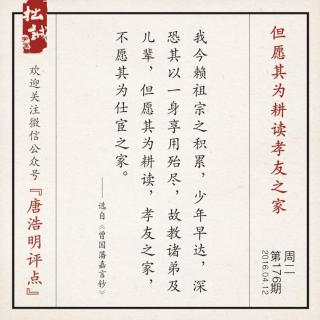 但愿其为耕读孝友之家
我今赖祖宗之积累，少年早达，深
恐其以一身享用殆尽，故教诸弟及
儿辈，但愿其为耕读，孝友之家，
不愿其为仕宦之家。
——选自《曾国藩嘉言钞》
周二
第176期
2016.04.12
松誠
欢迎关注微信公众号
『唐浩明评点』